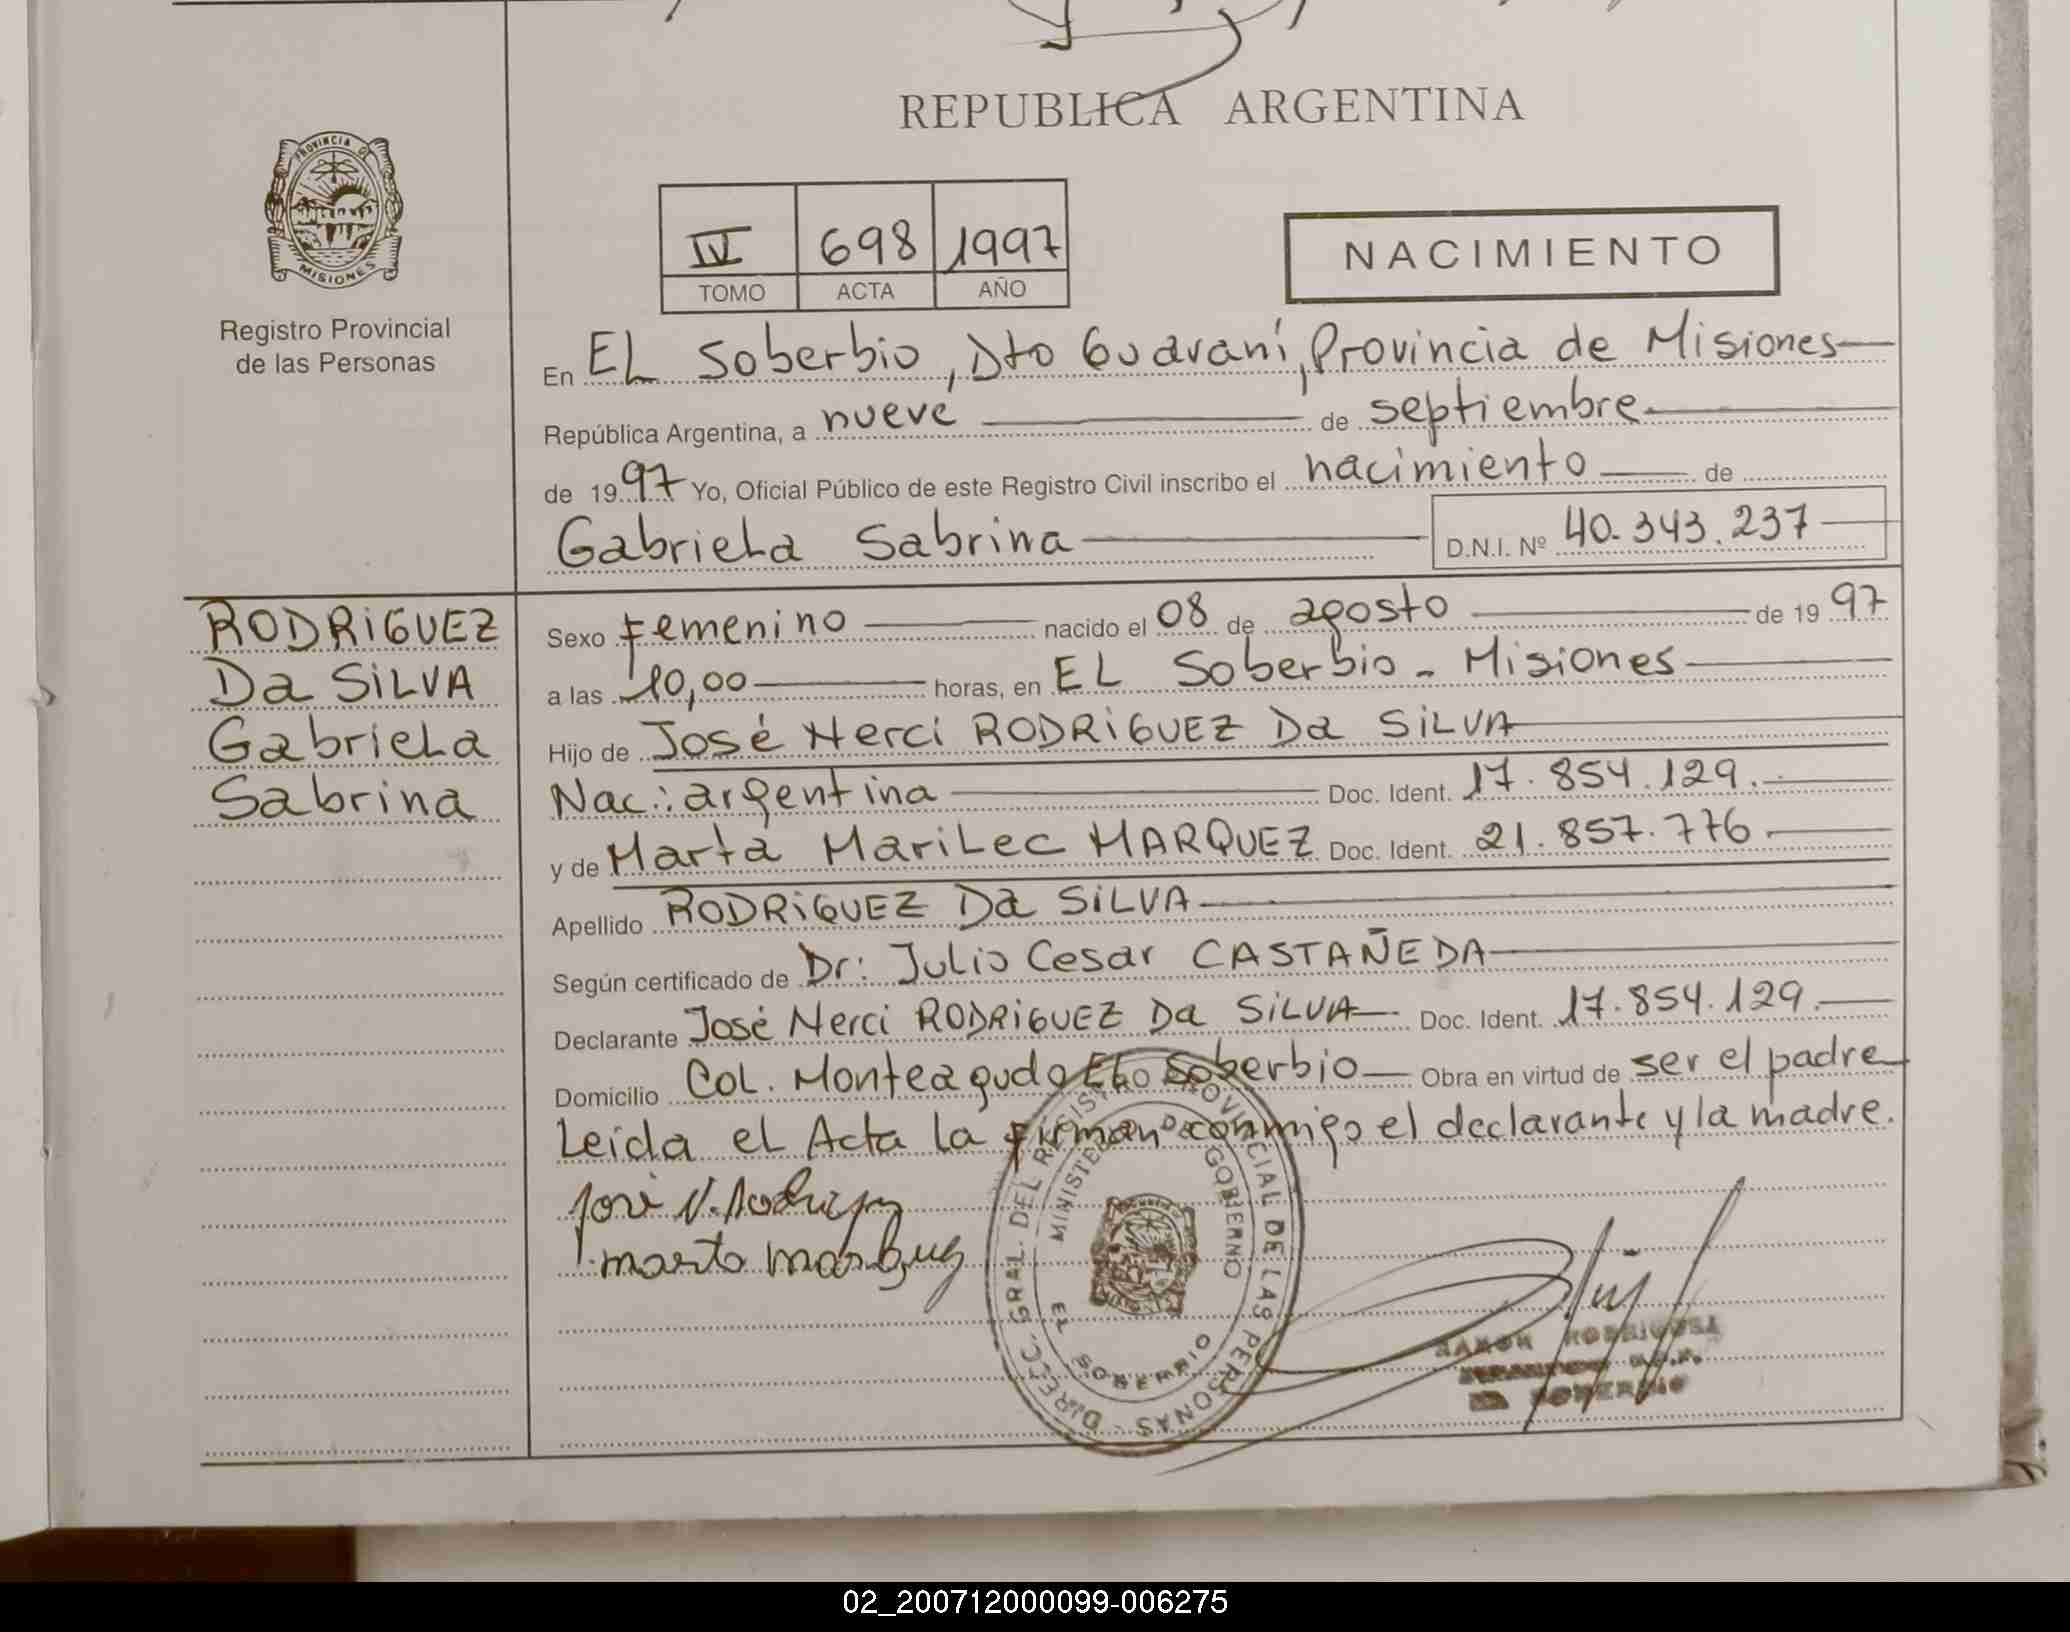 REPUBLICA ARGENTINA
PROVINCIA DE
MISIONES
Registro Provincial
de las Personas
IV 698 1997
TOMO ACTA AÑO
NACIMIENTO
En EL Soberbio, Dto Guaraní, Provincia de Misiones
República Argentina, a nueve de septiembre
de 1997 Yo, Oficial Público de este Registro Civil inscribo el nacimiento de
Gabriela Sabrina D.N.I. Nº 40.343.237
RODRIGUEZ
Da SILVA
Gabriela
Sabrina
Sexo Femenino nacido el 08 de agosto de 1997
a las 10,00 horas, en EL Soberbio - Misiones
Hijo de José Nerci RODRIGUEZ Da SILVA
Nac.: argentina Doc. Ident. 17.854.129.
y de Marta MariLec MARQUEZ Doc. Ident. 21.857.776
Apellido RODRIGUEZ Da SILVA
Según certificado de Dr: Julio Cesar CASTAÑEDA
Declarante José Nerci RODRIGUEZ Da SILVA Doc. Ident. 17.854.129.
Domicilio Col. Monteagudo EL Soberbio Obra en virtud de ser el padre
Leida el Acta la firman conmigo el declarante y la madre.
José N. Rodriguez
marta marquez
DIRECC. GRAL. DEL REGISTRO PROVINCIAL DE LAS PERSONAS
MINISTERIO DE GOBIERNO
EL SOBERBIO
SOBERBIO
02_200712000099-006275